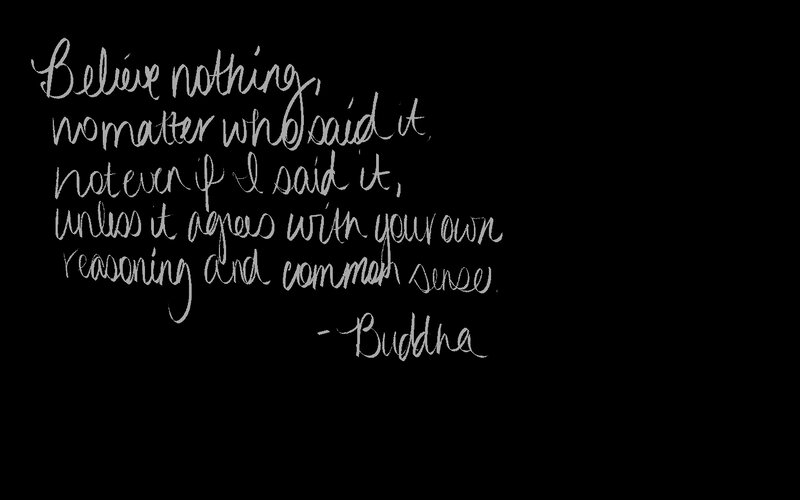 Believe nothing,
no matter who said it,
not even if I said it,
unless it agrees with your own
reasoning and common sense.
- Buddha